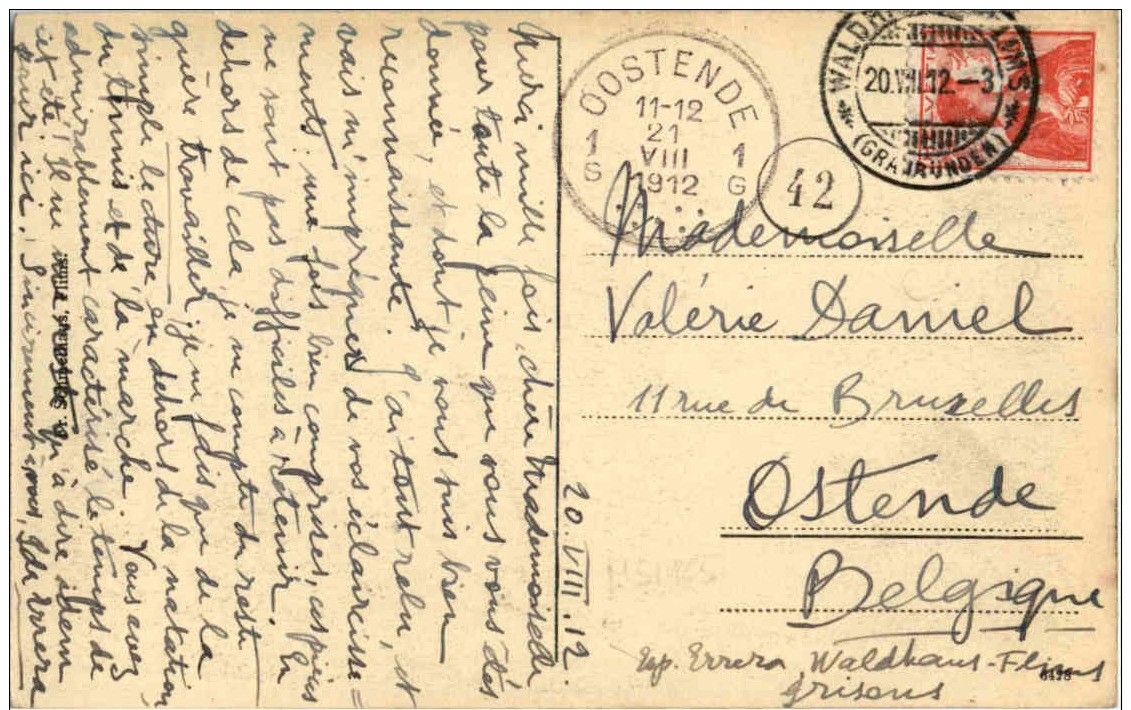 Merci mille fois, chère Mademoiselle
pour toute la peine que vous vous êtes
donnée, et dont je vous suis bien
reconnaissante. J'ai tout relu, et
vais m'imprégner de vos éclaircisse=
ments; une fois bien comprises,
ne sont pas difficiles à retenir. En
dehors de cela je me compte du reste
guère travailler, je ne fais que de la
simple lecture en dehors de la natation,
du tennis et de la marche. Vous avez
admirablement caractérisé le temps de
cet été! Il ne qu'à dire idem
pour ici. Sincèrement à vous, Errera
20.VIII.12
OOSTENDE
11-12
21
VIII
1912
1 1
S G
42
WALDHAUS-FLIMS
20.VIII.12.-3
(GRAUBÜNDEN)
Mademoiselle
Valérie Daniel
11 rue de Bruxelles
Ostende
Belgique
Exp. Errera, Waldhaus-Flims
Grisons
6428